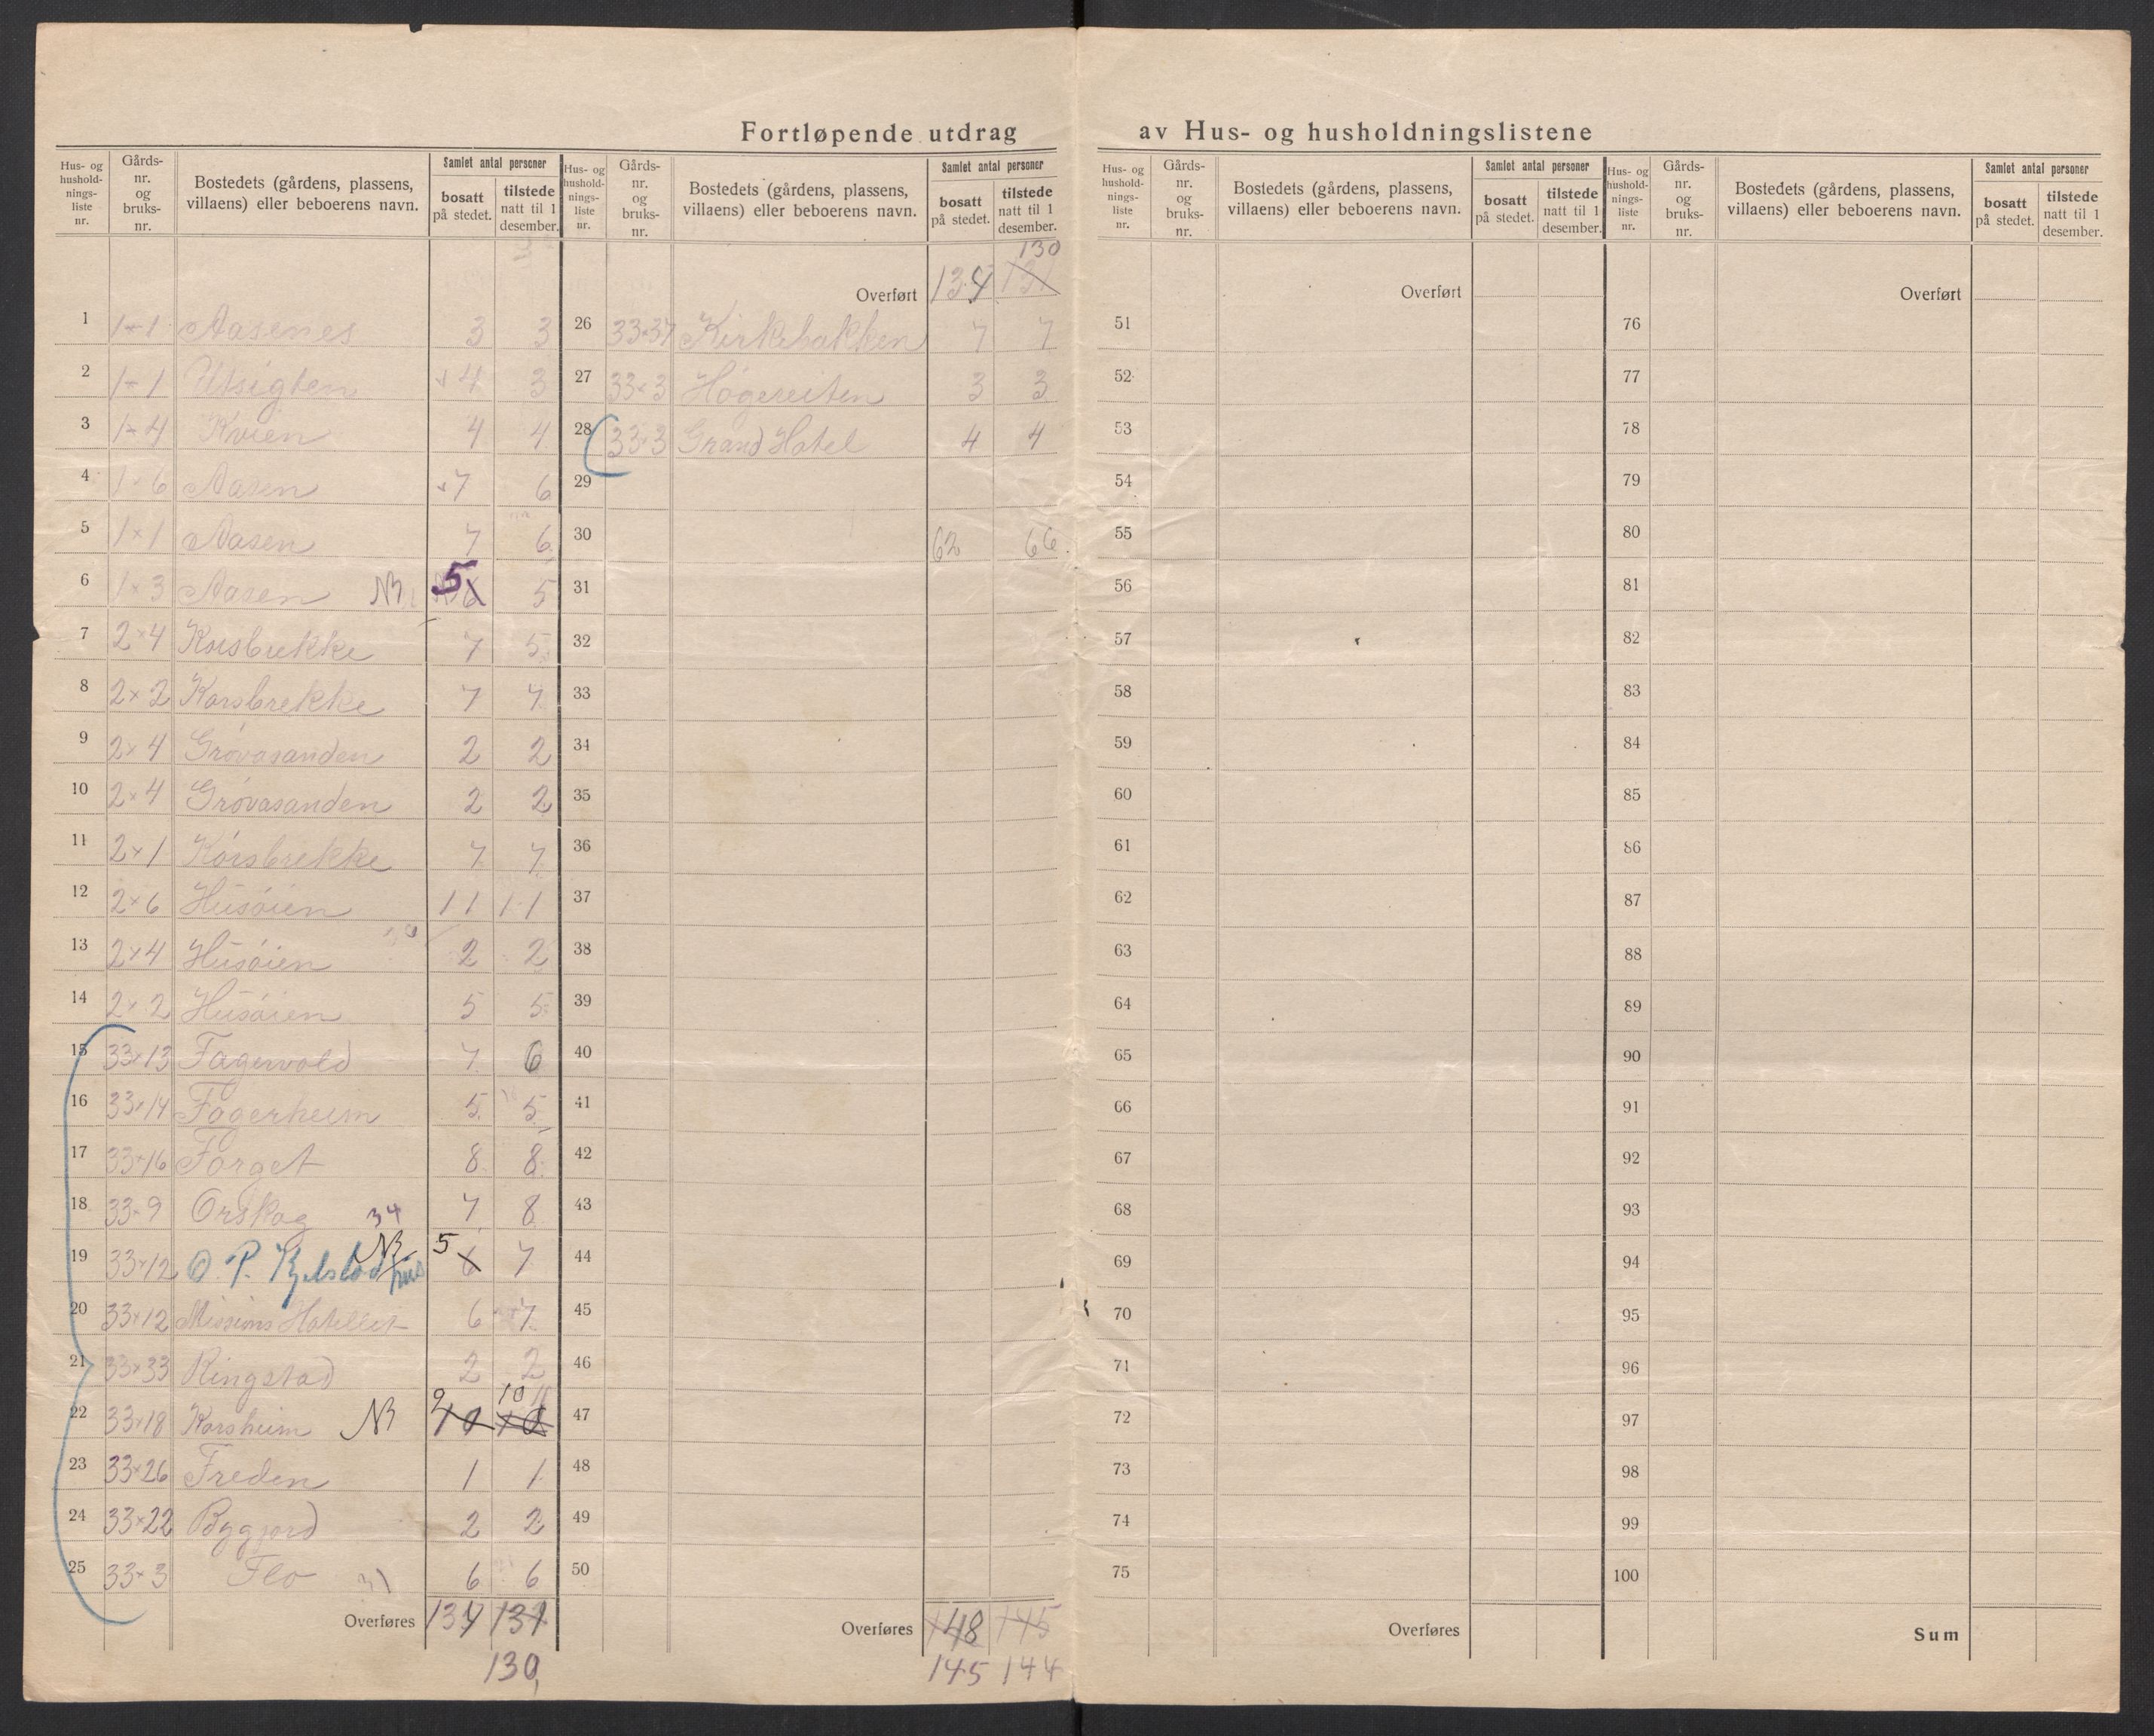 Fortløpende utdrag av Hus- og husholdningslistene
Hus- og hushold- nings- liste nr. | Gårds- nr. og bruks- nr. | Bostedets (gårdens, plassens, villaens) eller beboerens navn. | Samlet antal personer | bosatt på stedet. | tilstede natt til 1 desember.
1 1×1 Aasenes 3 3
2 1×1 Utsigten 4 3
3 1×4 Kvien 4 4
4 1×6 Aasen 7 6
5 1×1 Aasen 7 6
6 1×3 Aasen NB 5 6 5
7 2×4 Korsbrekke 7 5
8 2×2 Korsbrekke 7 7
9 2×4 Grøvasanden 2 2
10 2×4 Grøvasanden 2 2
11 2×1 Korsbrekke 7 7
12 2×6 Husøien 11 11
13 2×4 Husøien 2 2
14 2×2 Husøien 5 5
15 33×13 Fagervold 7 6
16 33×14 Fagerheim 5 5
17 33×16 Torget 8 8
18 33×9 Ørskog 34 7 8
19 33×12 O. P. Kjelstad hus NB 5 6 7
20 33×12 Missions Hotellet 6 7
21 33×33 Ringstad 2 2
22 33×18 Korsheim NB 9 10 10
23 33×26 Freden 1 1
24 33×22 Byggjord 2 2
25 33×3 Flo 31 6 6
Overføres 134 131
130
Hus- og hushold- nings- liste nr. | Gårds- nr. og bruks- nr. | Bostedets (gårdens, plassens, villaens) eller beboerens navn. | Samlet antal personer | bosatt på stedet. | tilstede natt til 1 desember.
130
Overført 134 131
26 33×37 Kirkebakken 7 7
27 33×3 Høgereiten 3 3
28 33×3 Grand Hotel 4 4
29
30 62 66
31
32
33
34
35
36
37
38
39
40
41
42
43
44
45
46
47
48
49
50
Overføres 148 145
145 144
Hus- og hushold- nings- liste nr. | Gårds- nr. og bruks- nr. | Bostedets (gårdens, plassens, villaens) eller beboerens navn. | Samlet antal personer | bosatt på stedet. | tilstede natt til 1 desember.
Overført
51
52
53
54
55
56
57
58
59
60
61
62
63
64
65
66
67
68
69
70
71
72
73
74
75
Overføres
Hus- og hushold- nings- liste nr. | Gårds- nr. og bruks- nr. | Bostedets (gårdens, plassens, villaens) eller beboerens navn. | Samlet antal personer | bosatt på stedet. | tilstede natt til 1 desember.
Overført
76
77
78
79
80
81
82
83
84
85
86
87
88
89
90
91
92
93
94
95
96
97
98
99
100
Sum